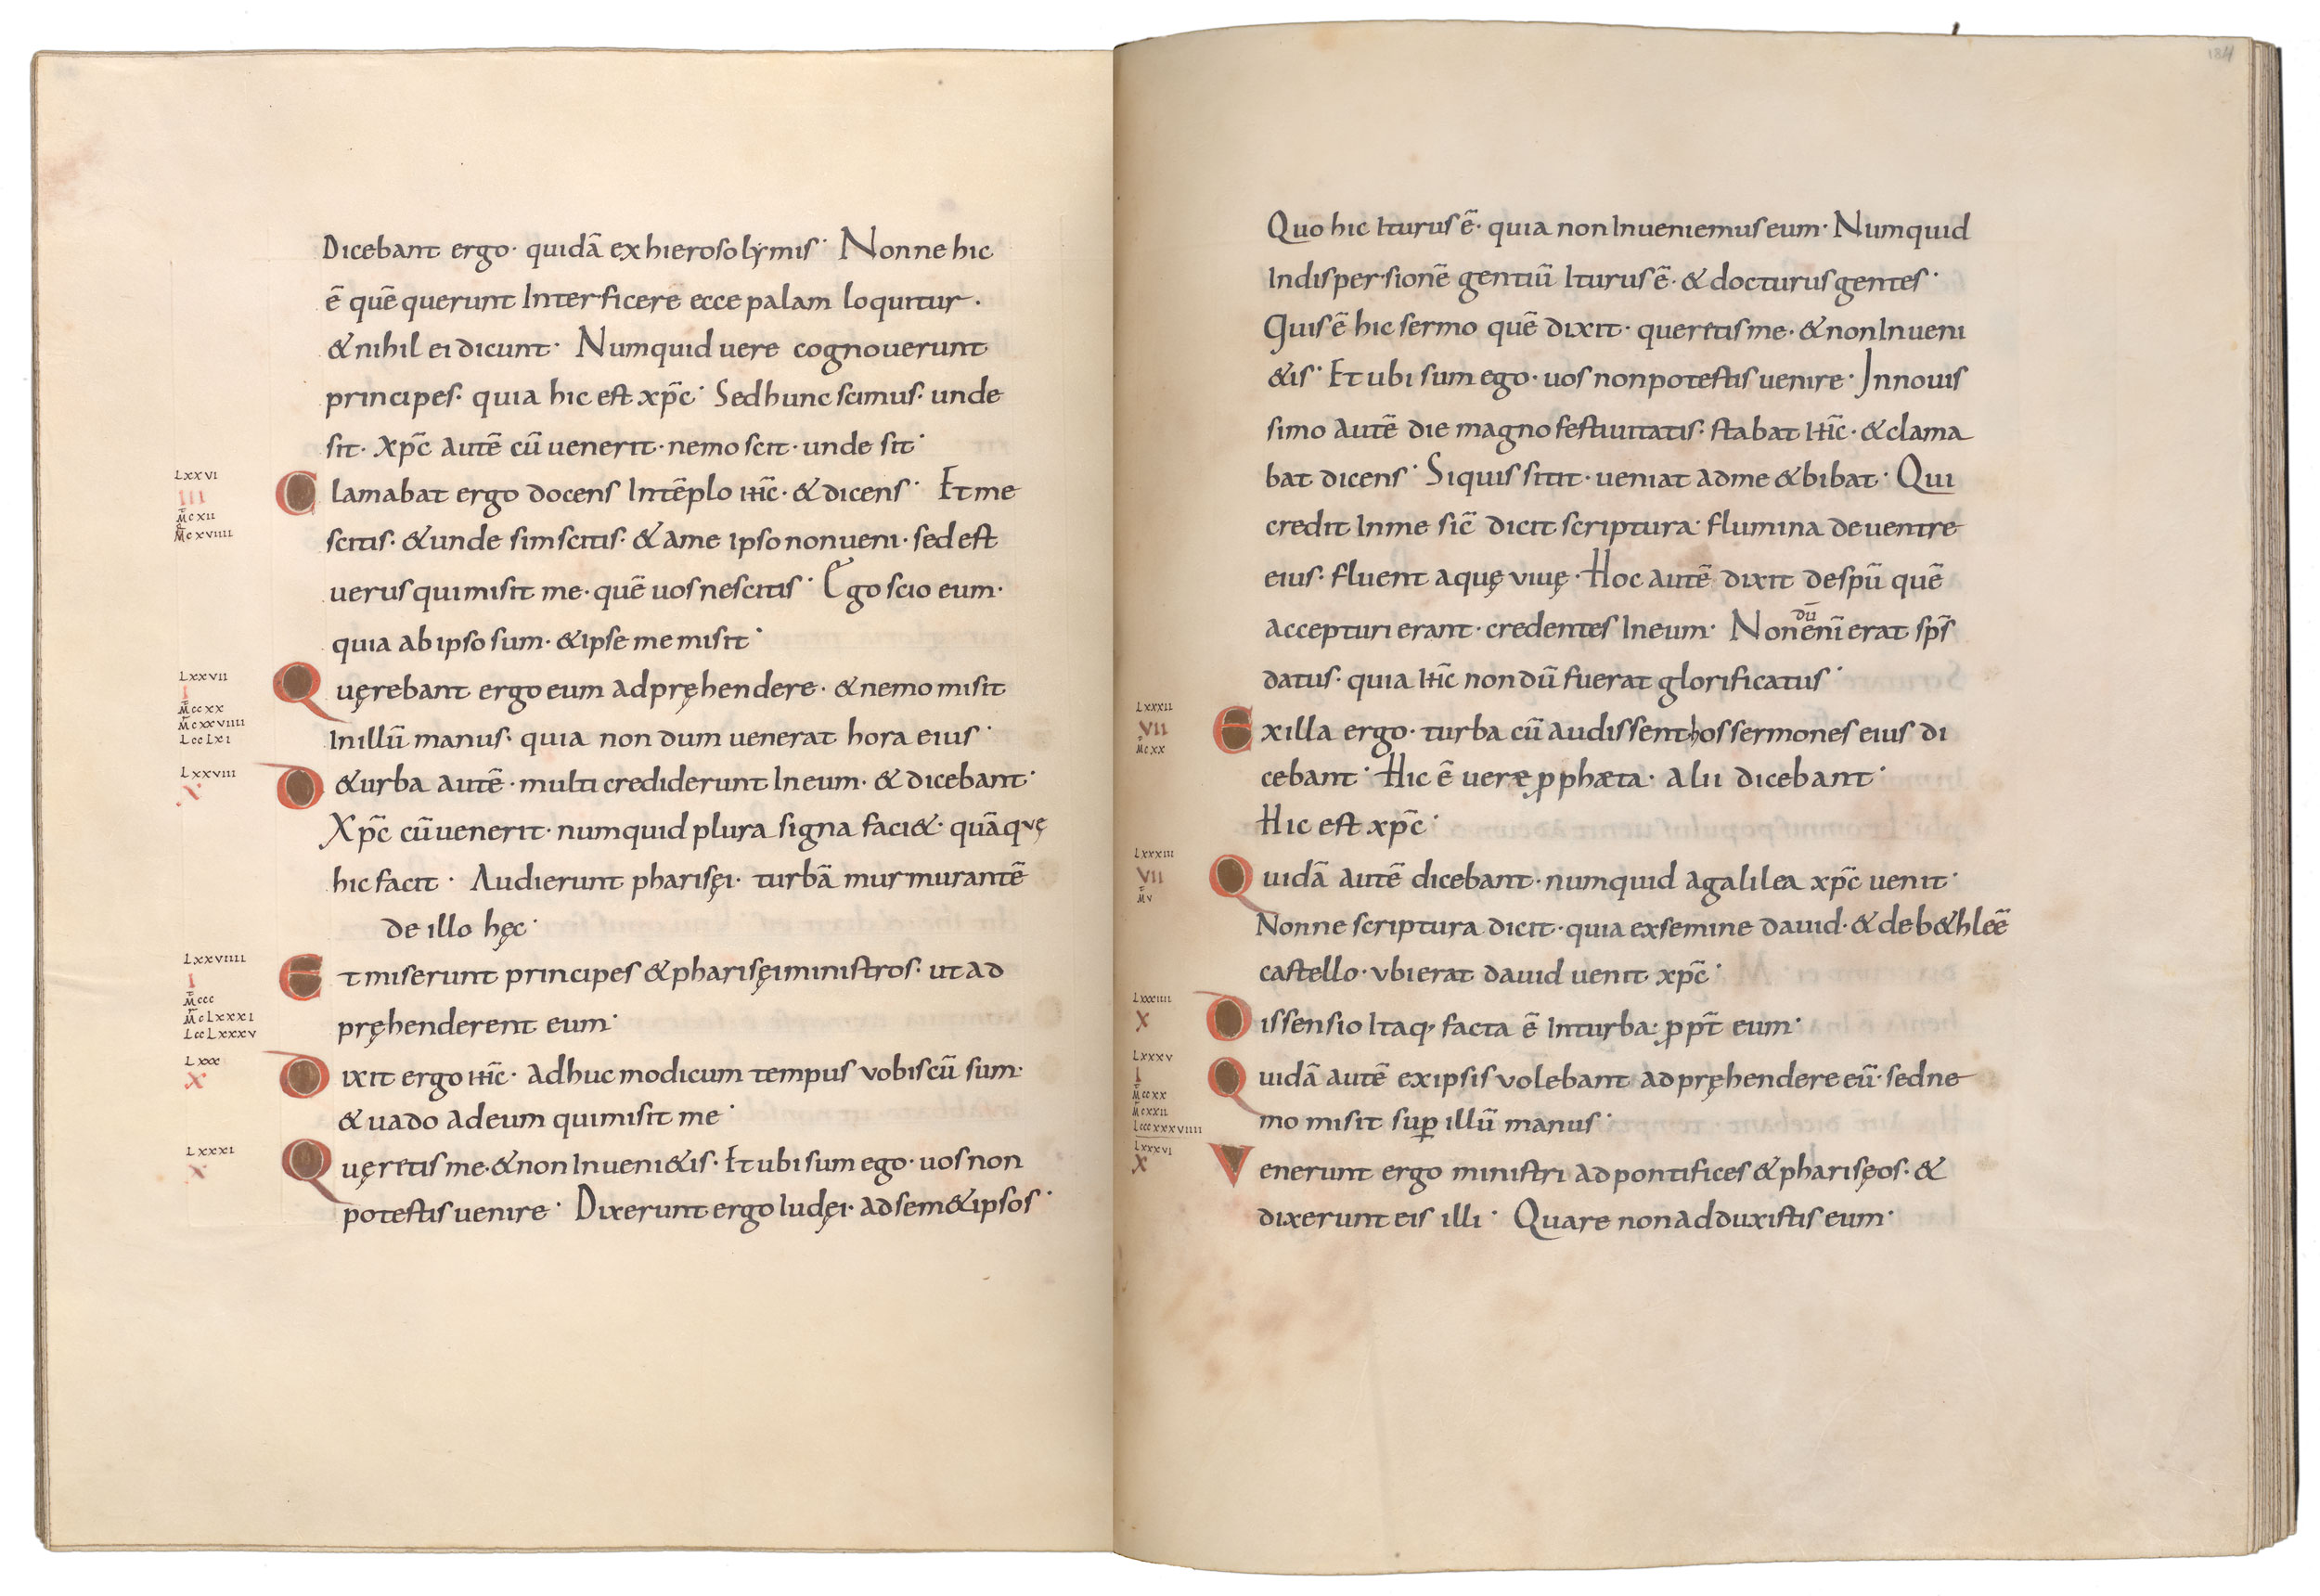 Dicebant ergo· quidā ex hierosolymis· Nonne hic
ē quē querunt Interficere ecce palam loquitur·
& nihil ei dicunt· Numquid uere cognouerunt
principes· quia hic est xp̄c· Sed hunc scimus· unde
sit· Xp̄c autē cū uenerit· nemo scit· unde sit·
Lxxvi
III
M̄cxii
M̄cxviiii
Clamabat ergo docens Intēplo ih̄c· & dicens· Et me
scitis· & unde sim scitis· & ame ipso non ueni· sed est
uerus qui misit me· quē uos nescitis· Ego scio eum·
quia ab ipso sum· & ipse me misit·
Lxxvii
I
M̄ccxx
M̄cxxviiii
LccLxi
Quęrebant ergo eum adpręhendere· & nemo misit
Inillū manus· quia non dum uenerat hora eius·
Lxxviii
X
D&urba autē· multi crediderunt In eum· & dicebant·
Xp̄c cū uenerit· numquid plura signa faci&· quā quę
hic facit· Audierunt pharisęi· turbā murmurantē
de illo hęc·
Lxxviiii
I
M̄ccc
M̄cLxxxi
LccLxxxv
Et miserunt principes & pharisęi ministros· ut ad
pręhenderent eum·
Lxxx
X
Dixit ergo ih̄c· adhuc modicum tempus vobis cū sum·
& uado ad eum qui misit me·
Lxxxi
X
Quęretis me· & non Inueni&is· Et ubi sum ego· uos non
potestis uenire· Dixerunt ergo Iudęi· ad sem&ipsos·
184
Quo hic Iturus ē· quia non Inueniemus eum· Numquid
Indispersionē gentiū Iturus ē· & docturus gentes·
Quis ē hic sermo quē dixit· queretis me· & non Inueni
&is· Et ubi sum ego· uos non potestis uenire· Innouis
simo autē die magno festiuitatis· stabat ih̄c· & clama
bat dicens· Siquis sitit· ueniat adme & bibat· Qui
credit Inme sic̄ dicit scriptura· flumina deuentre
eius· fluent aquę viuę· Hoc autē dixit de spū quē
accepturi erant· credentes In eum· Non dū enī erat sp̄s
datus· quia ih̄c non dū fuerat glorificatus·
Lxxxii
VII
M̄cxx
Exilla ergo· turba cū audissent hos sermones eius di
cebant· Hic ē veræ p̱phæta· alii dicebant·
Hic est xp̄c·
Lxxxiii
VII
M̄v
Quidā autē dicebant· numquid agalilea xp̄c uenit·
Nonne scriptura dicit· quia exsemine dauid· & de b&hleē
castello· vbi erat dauid uenit xp̄c·
Lxxxiiii
X
Dissensio Itaq, facta ē Inturba: p̱pt̄ eum·
Lxxxv
I
M̄ccxx
M̄cxxii
Lcccxxxviiii
Quidā autē exipsis volebant adpręhendere eū· sed ne
mo misit sup̱ illū manus·
Lxxxvi
X
Venerunt ergo ministri ad pontifices & pharisęos· &
dixerunt eis illi· Quare non adduxistis eum·